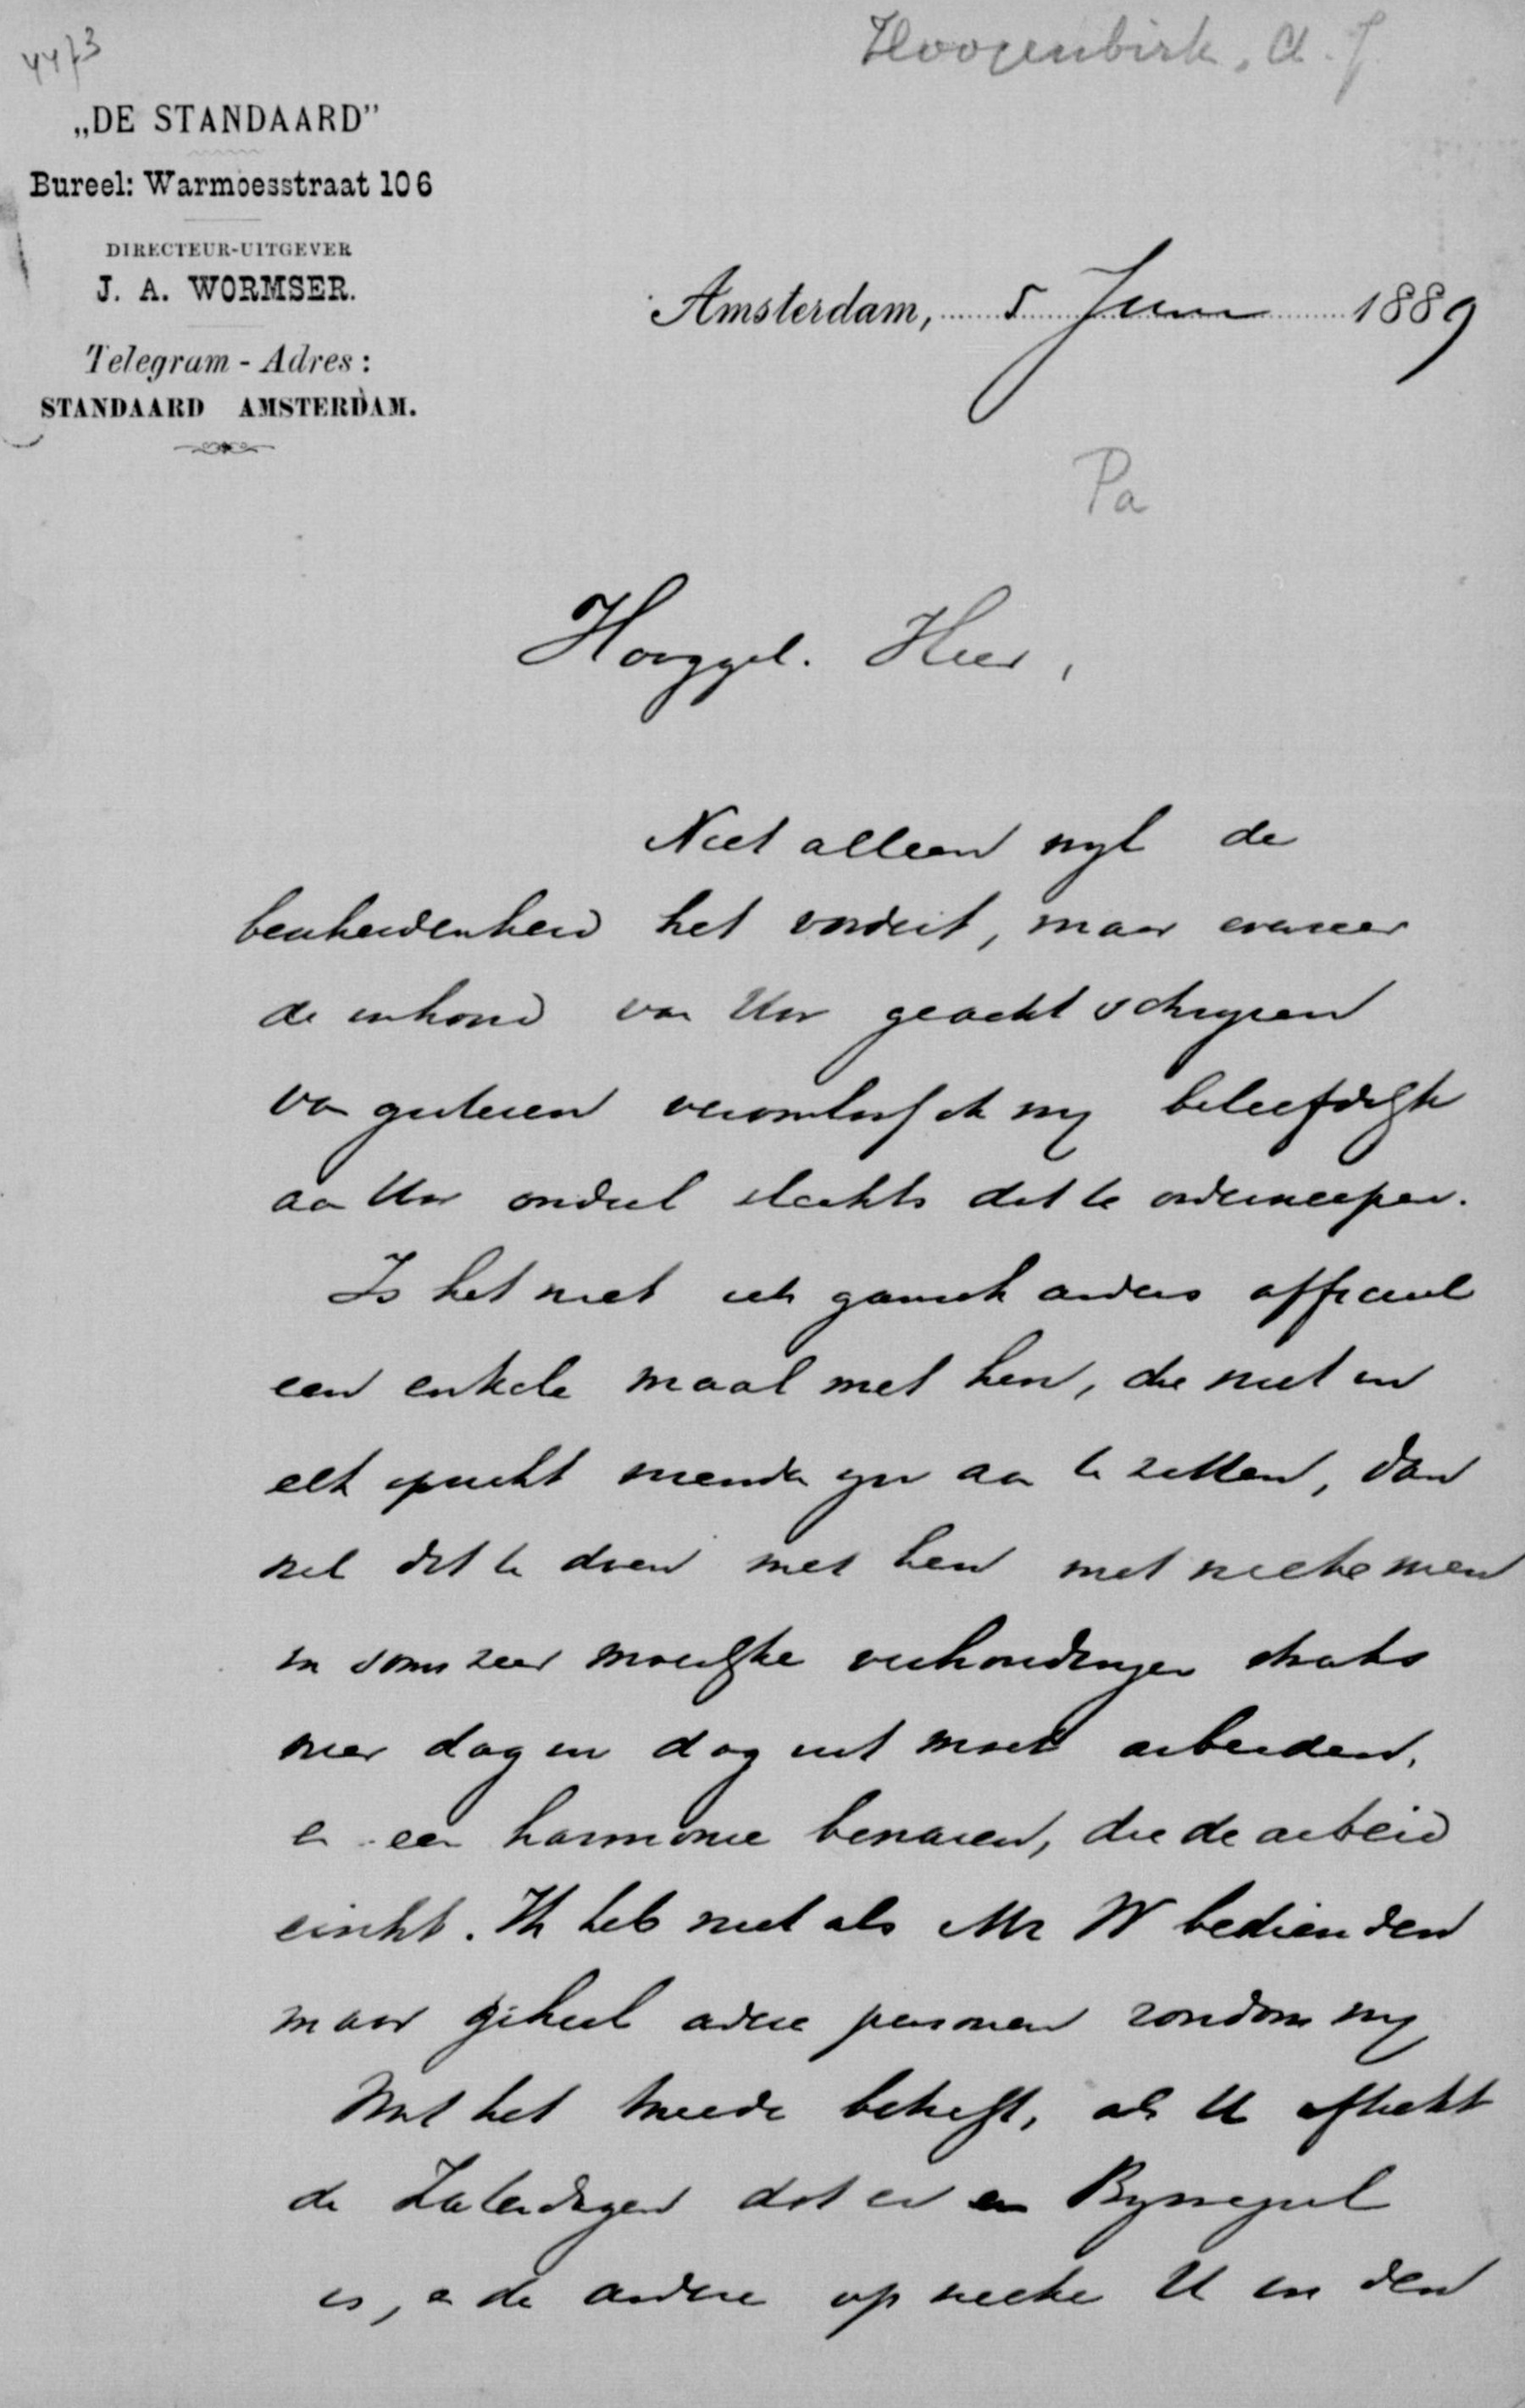 4473
Hoogenbirk, A. J.
„DE STANDAARD”
Bureel: Warmoesstraat 106
DIRECTEUR-UITGEVER
J. A. WORMSER.
Telegram - Adres:
STANDAARD AMSTERDAM.
Amsterdam, 5 Juni 1889
Pa
Hooggel. Heer,
Niet alleen wijl de
bescheidenheid het verbiedt, maar evenzeer
de inhoud van Uw geacht schrijven
van gisteren veroorloof ik mij beleefdelijk
aan Uw oordeel slechts dit te onderwerpen.
Is het niet iets gansch anders officieel
een enkele maal met hen, die niet in
elk opzicht vrienden zijn aan te zitten, dan
wel dit te doen met hen met welke men
in soms zeer moeilijke verhoudingen
weer dag in dag uit moet arbeiden,
en een harmonie bewaren, die de arbeid
eischt. Ik heb niet als Mr W bedienden
maar geheel andere personen rondom mij
Wat het tweede betreft, als U aftrekt
de Zaterdagen dat er een Byvoegsel
is, en de andere op welke U in den